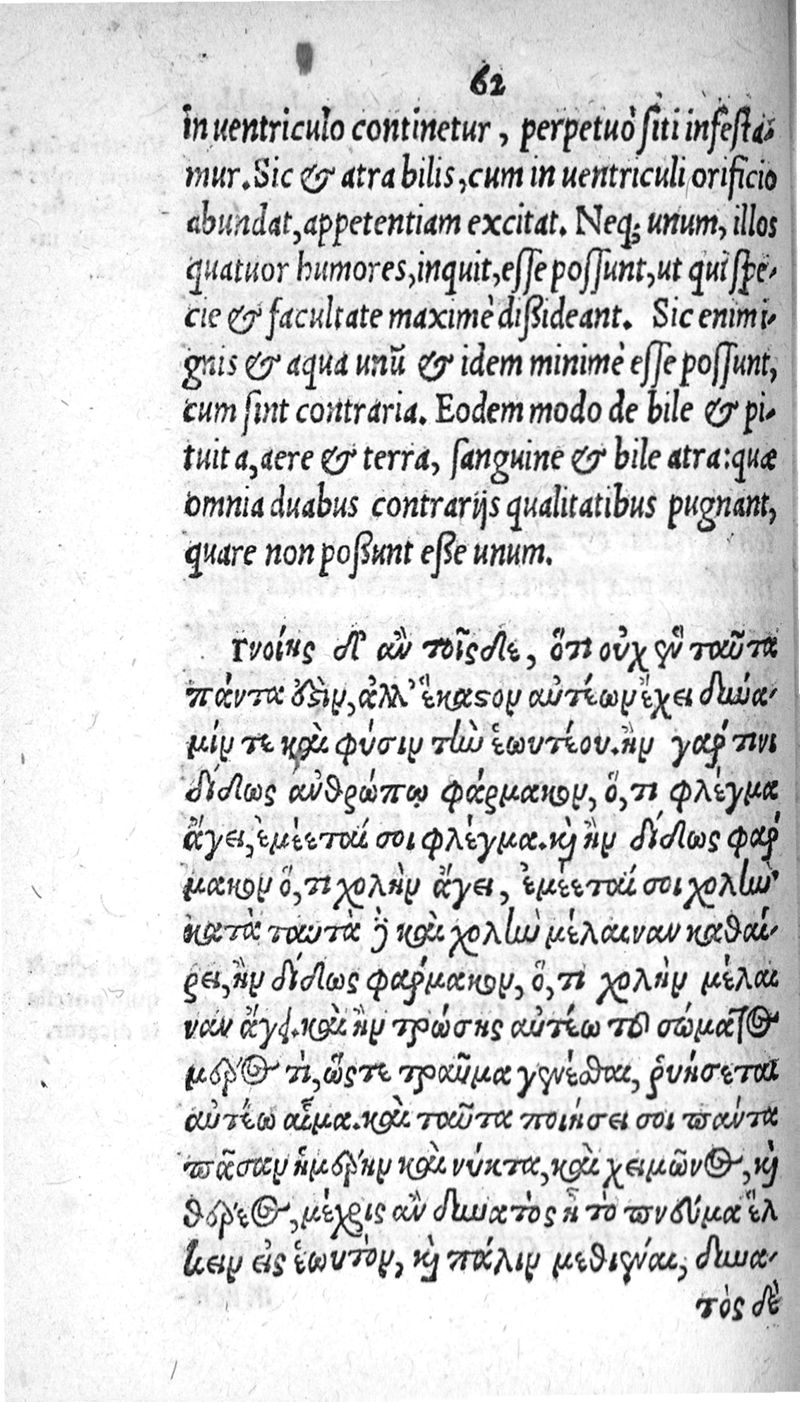 62
in uentriculo continetur, perpetuò siti infesta-
mur. Sic & atra bilis, cum in uentriculi orificio
abundat, appetentiam excitat. Neq; unum, illos
quatuor humores, inquit, esse possunt, ut qui spe-
cie & facultate maximè dißideant. Sic enim i-
gnis & aqua unũ & idem minimè esse possunt,
cum sint contraria. Eodem modo de bile & pi-
tuita, aere & terra, sanguine & bile atra: quæ
omnia duabus contrarijs qualitatibus pugnant,
quare non poßunt eße unum.
Γνοίης δ' ἂν τοῖςδε, ὅτι οὐχ ἓν ταῦτα
πάντα ὅσιν, ἀλλ' ἕκαστον αὐτέων ἔχει δύνα-
μίν τε καὶ φύσιν τὴν ἑωυτέου. ἢν γάρ τινι
δίδως ἀνθρώπῳ φάρμακον, ὅ, τι φλέγμα
ἄγει, ἐμέεταί σοι φλέγμα. καὶ ἢν δίδως φάρ
μακον ὅ, τι χολὴν ἄγει, ἐμέεταί σοι χολὴ
κατὰ ταυτὰ δὲ καὶ χολὴν μέλαιναν καθαί-
ρει, ἢν δίδως φάρμακον, ὅ, τι χολὴν μέλαι
ναν ἄγει. καὶ ἢν τρώσῃς αὐτέω τοῦ σώματος
μέρος τὶ, ὥςτε τραῦμα γενέσθαι, ῥυήσεται
αὐτέω αἷμα. καὶ ταῦτα ποιήσει σοι πάντα
πᾶσαν ἡμέρην καὶ νύκτα, καὶ χειμῶνος, καὶ
θέρεος, μέχρις ἂν δυνατὸς ᾖ τὸ πνεῦμα ἕλ
κειν εἰς ἑωυτὸν, καὶ πάλιν μεθιέναι, δυνα-
τὸς δὲ